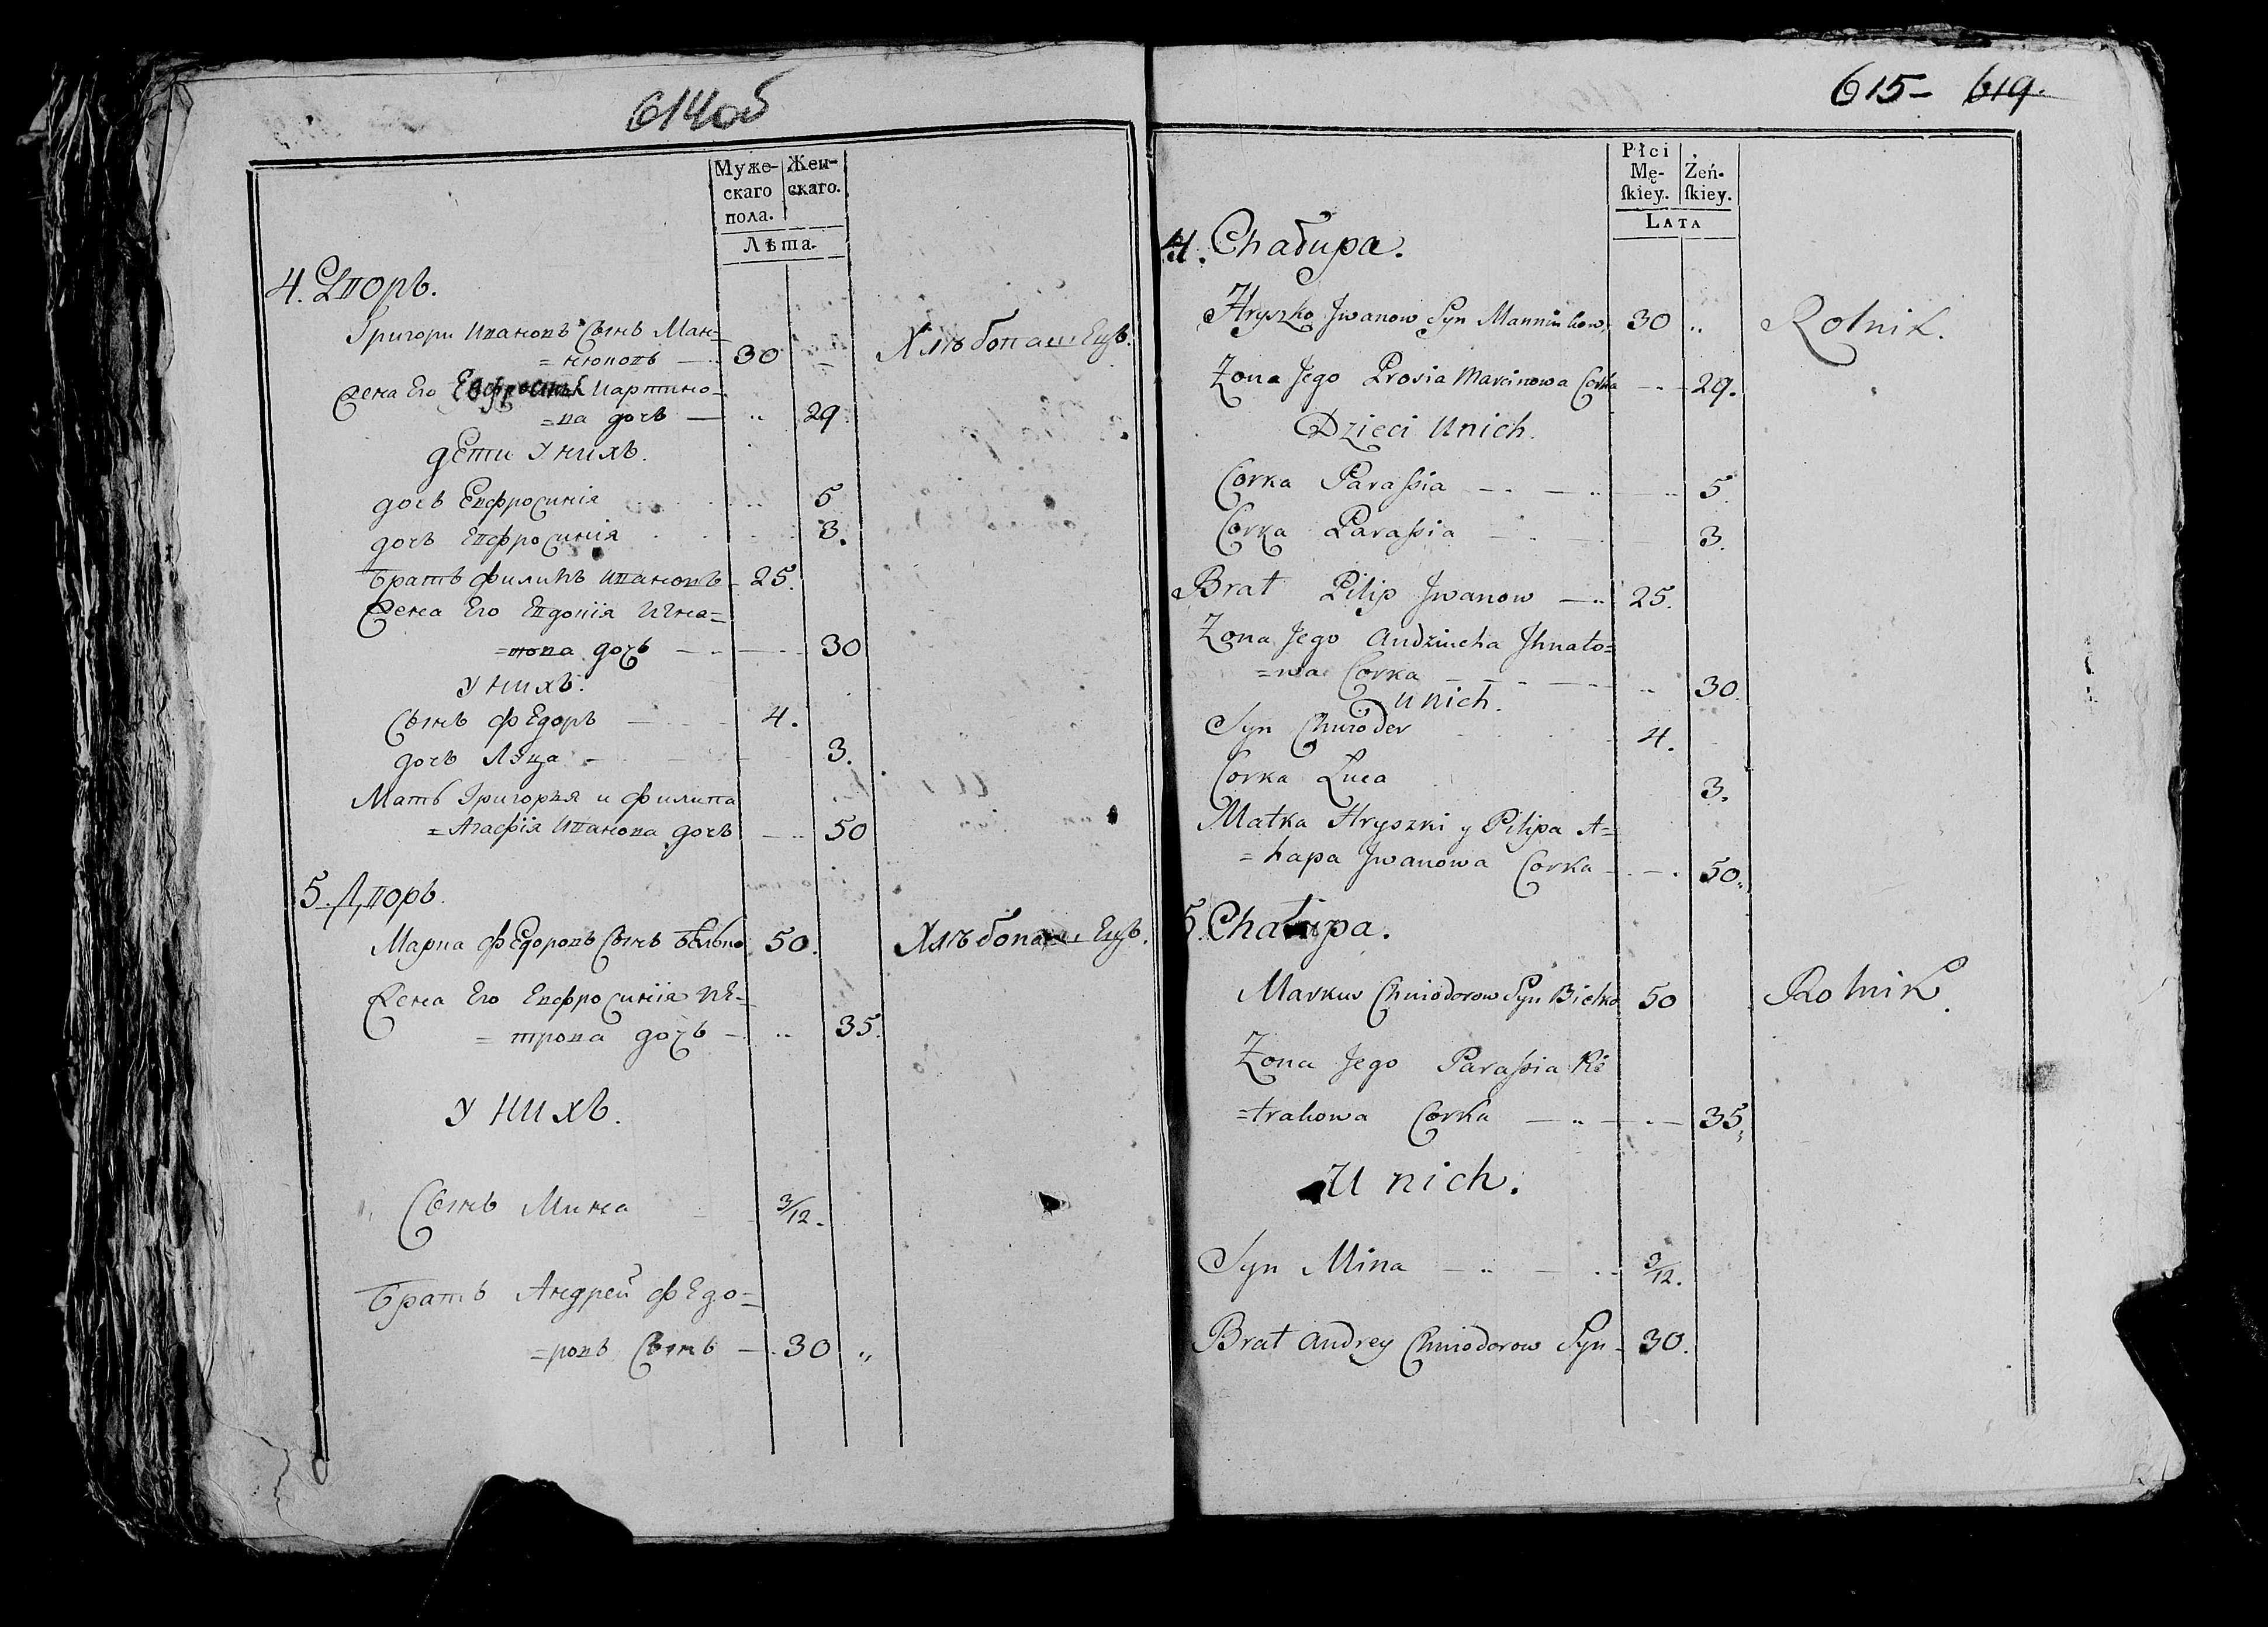 614об
Муже-
скаго
пола.
Жен-
скаго.
Лѣта.
4. Дворъ.
Григори Ивановъ Сынъ Ман-
=нюковъ — 30
Жена Его Мартино-
=ва дочь — 29.
дети У нихъ.
дочь Евфросинiя 5
дочь Евфросинiя 3.
Братъ филипъ Ивановъ 25.
Жена Его Евдокiя Игна=
=това дочь — 30
У нихъ.
Сынъ фЕдоръ — 4.
дочь Луца — 3.
Мать Григорья и филипа
=Агафiя Иванова дочь — 50
Хлѣбопашецъ.
5. Дворъ.
Марка фЕдоровъ Сынъ Белько 50.
Жена Его Евфросинiя пЕ-
=трова дочь — 35.
У нихъ.
Сынъ Мина 3/12.
Братъ Андрей фЕдо=
=ровъ Сынъ — 30 „
Хлѣбопашецъ.
615- 619.
Płci
Mę-
ſkiey.
Żeń-
ſkiey.
LATA
4. Chałupa.
Hryszko Jwanow Syn 30 „ Rolnik.
Zona Jego Prosia Marcinowa Corka — 29.
Dzieci Unich.
Corka Paraſsia — 5.
Corka Paraſsia — 3.
Brat Pilip Jwanow — 25.
Zona Jego Audziucha Jhnato=
=wa Corka — 30.
Unich.
Syn Chwioder 4.
Corka Luca 3.
Matka Hryszki y Pilipa A=
=hapa Jwanowa Corka — 50.
5. Chałupa.
Markus Chwiodorow Syn Bielko 50 Rolnik.
Zona Jego Paraſsia
=trakowa Corka — 35,
U nich.
Syn Mina — 3/12.
Brat Andrey Chwiodorow Syn 30.